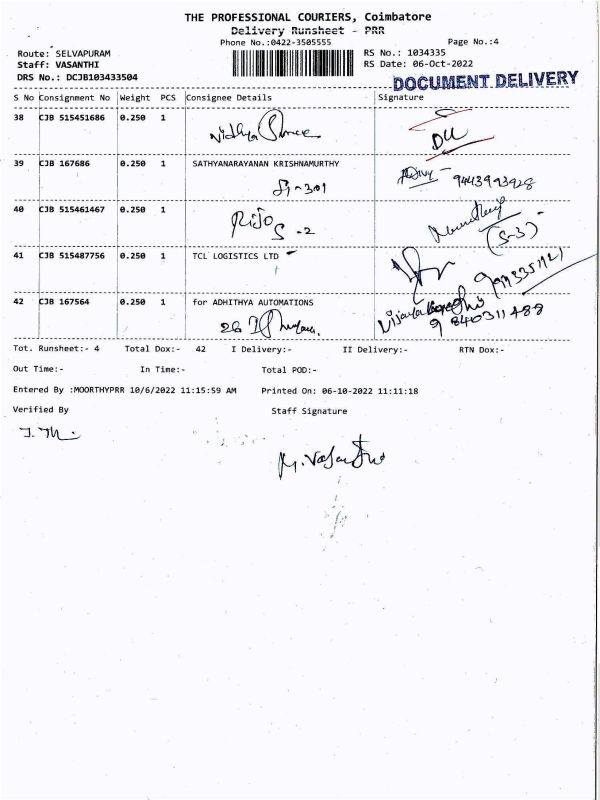 THE PROFESSIONAL COURIERS, Coimbatore
Delivery Runsheet - PRR
Phone No.:0422-3505555 Page No.:4
Route: SELVAPURAM RS No.: 1034335
Staff: VASANTHI RS Date: 06-Oct-2022
DRS No.: DCJB103433504
DOCUMENT DELIVERY
S No Consignment No Weight PCS Consignee Details Signature
38 CJB 515451686 0.250 1
Nidhya
DU
39 CJB 167686 0.250 1 SATHYANARAYANAN KRISHNAMURTHY
9443993928
40 CJB 515461467 0.250 1
Rijo S -2
(S-3)
41 CJB 515487756 0.250 1 TCL LOGISTICS LTD
42 CJB 167564 0.250 1 for ADHITHYA AUTOMATIONS
9840311488
Tot. Runsheet:- 4 Total Dox:- 42 I Delivery:- II Delivery:- RTN Dox:-
Out Time:- In Time:- Total POD:-
Entered By :MOORTHYPRR 10/6/2022 11:15:59 AM Printed On: 06-10-2022 11:11:18
Verified By Staff Signature
M. Vasanthi